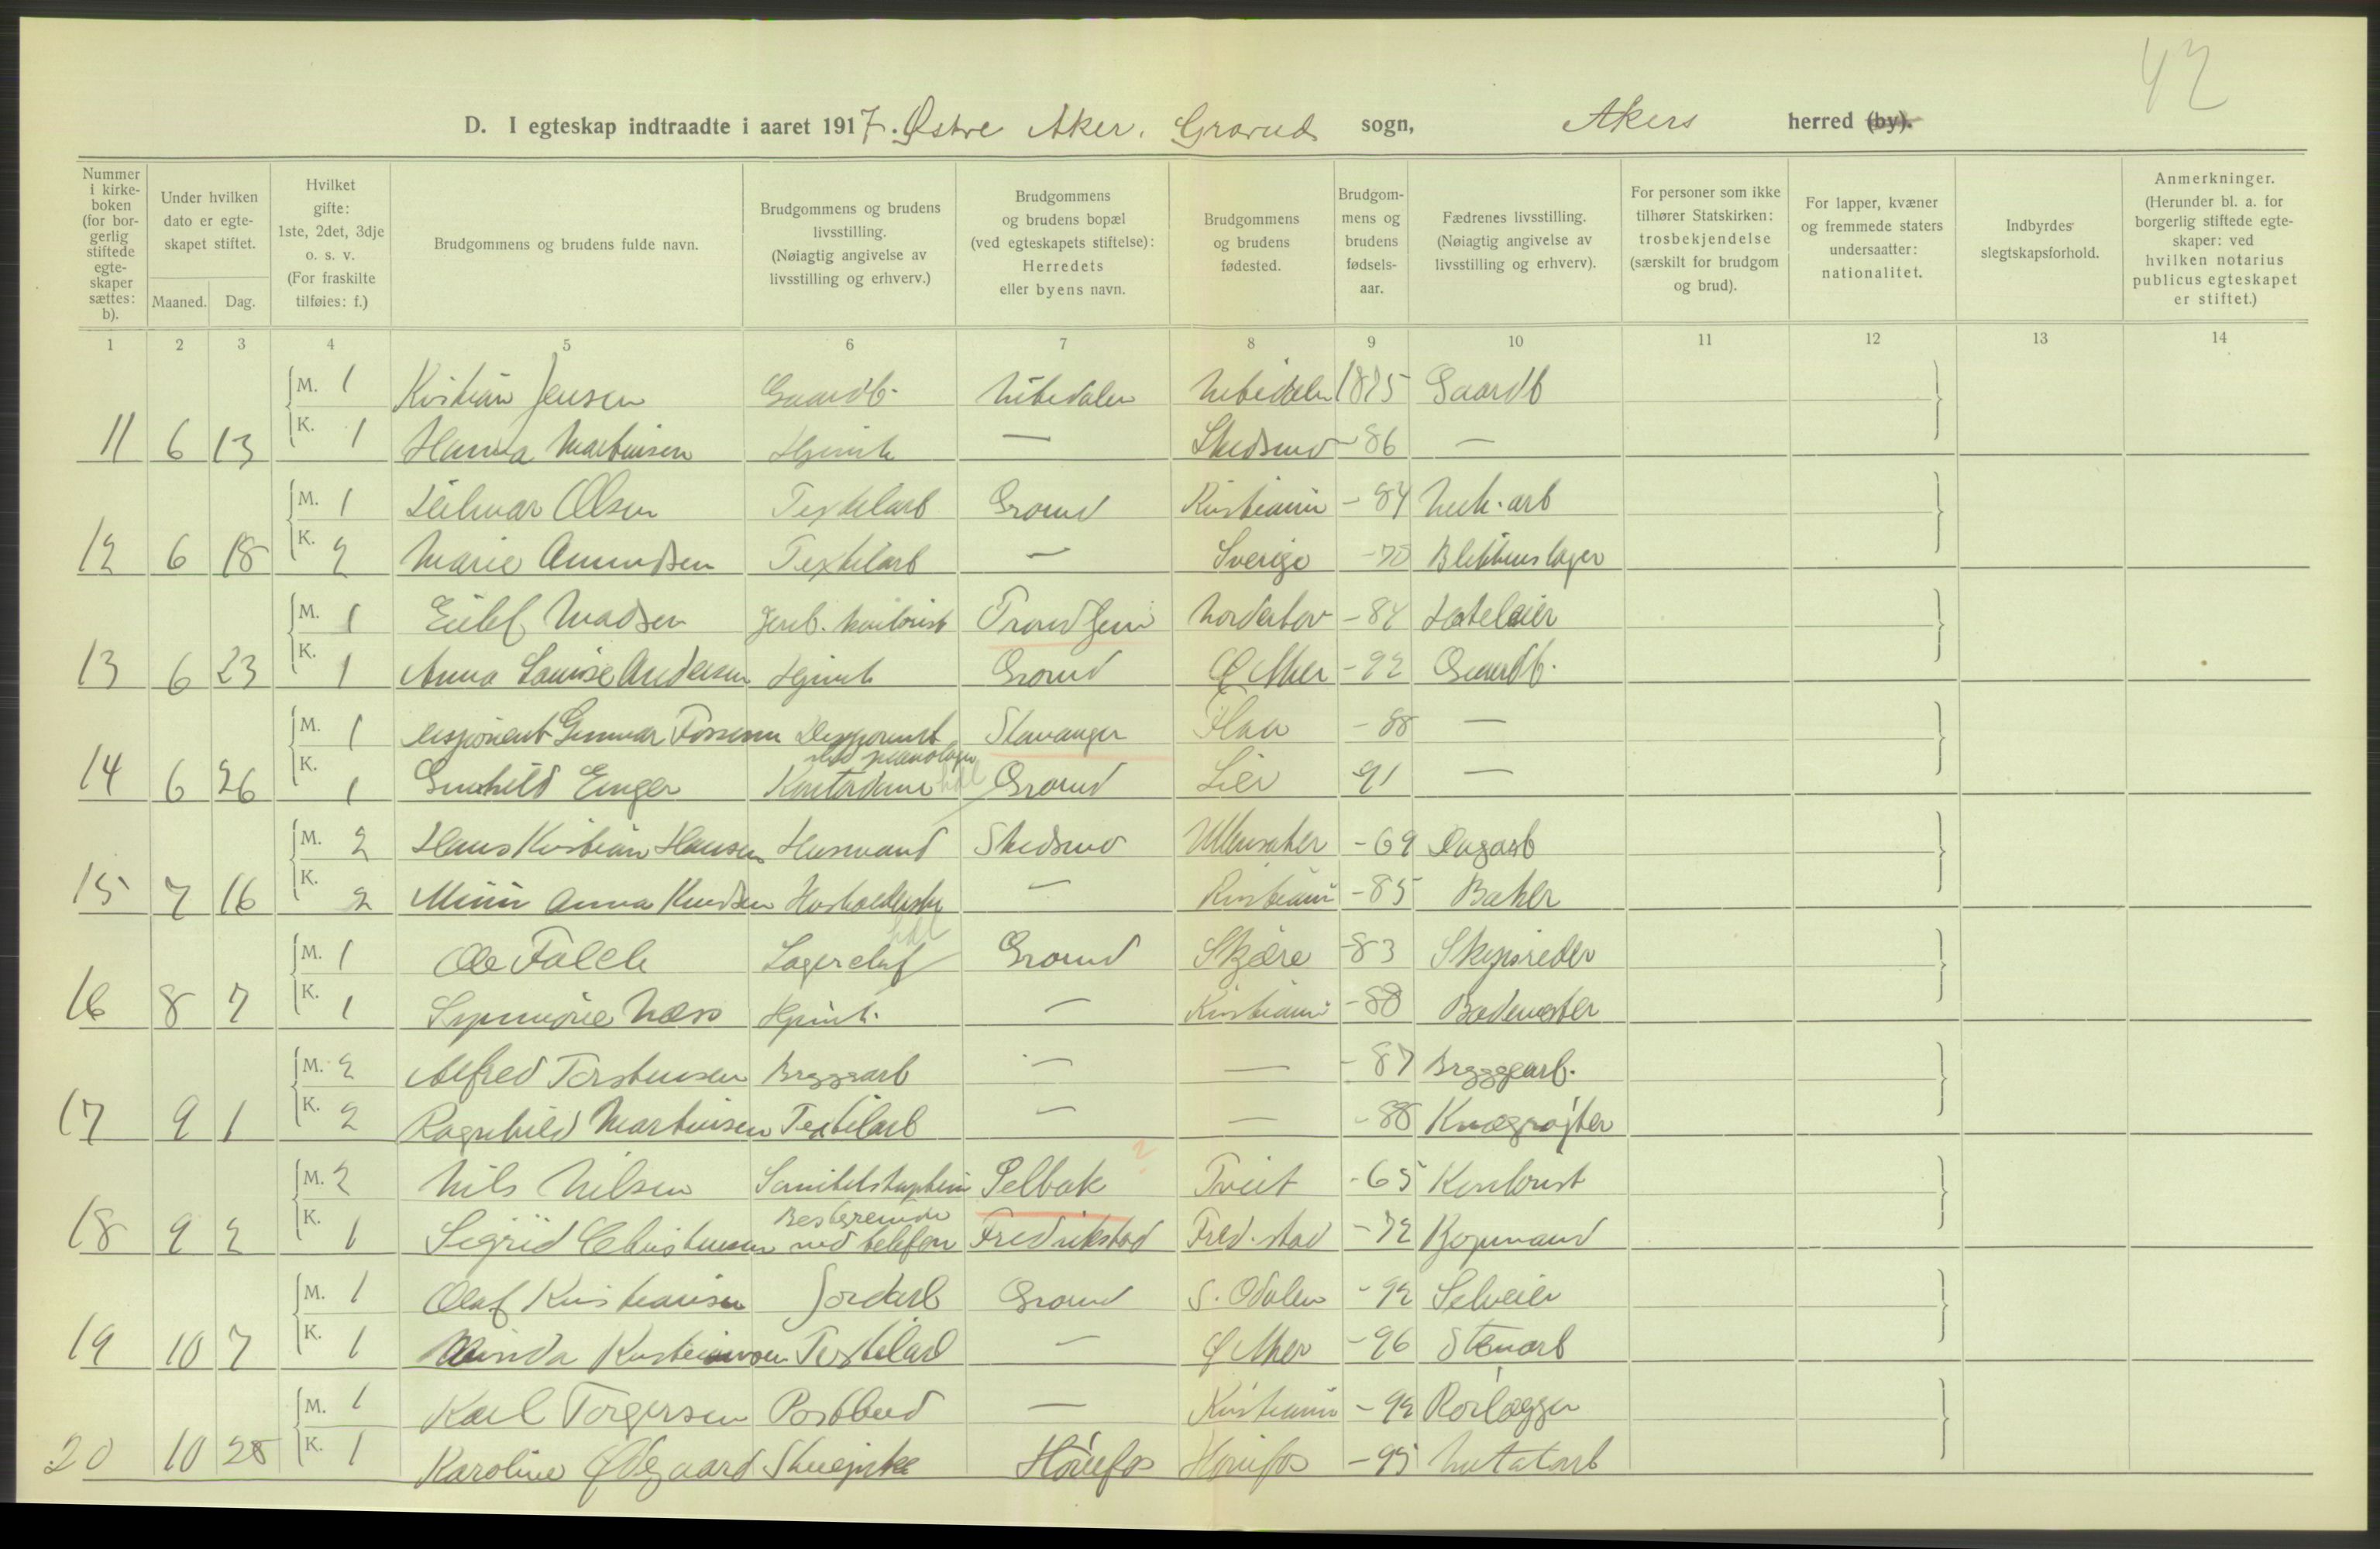 42
D. I egteskap indtraadte i aaret 1917. Østre Aker. Grorud sogn, Akers herred (by).
Nummer i kirkeboken (for borgerlig stiftede egteskaper sættes: b).
Under hvilken dato er egteskapet stiftet.
Maaned. Dag.
Hvilket gifte: 1ste, 2det, 3dje o. s. v. (For fraskilte tilføies: f.)
Brudgommens og brudens fulde navn.
Brudgommens og brudens livsstilling. (Nøiagtig angivelse av livsstilling og erhverv.)
Brudgommens og brudens bopæl (ved egteskapets stiftelse): Herredets eller byens navn.
Brudgommens og brudens fødested.
Brudgommens og brudens fødselsaar.
Fædrenes livsstilling. (Nøiagtig angivelse av livsstilling og erhverv).
For personer som ikke tilhører Statskirken: trosbekjendelse (særskilt for brudgom og brud).
For lapper, kvæner og fremmede staters undersaatter: nationalitet.
Indbyrdes slegtskapsforhold.
Anmerkninger. (Herunder bl. a. for borgerlig stiftede egteskaper: ved hvilken notarius publicus egteskapet er stiftet.)
1 2 3 4 5 6 7 8 9 10 11 12 13 14
M. 1 Kristian Jensen Gaardb. Nitedalen Nitedalen 1875 Gaardb
11 6 13 K. 1 Hanna Martinsen Hjemh — Skedsmo -86 —
M. 1 Hilmar Olsen Textilarb Grorud Kristiania -84 Mek. arb
12 6 18 K. 2 Marie Amundsen Textilarb — Sverige Blikkenslager
M. 1 Eilef Madsen Jernb. kontorist Trondhjem Norderhov -84 Hoteleier
13 6 23 K. 1 Anna Louise Andersen Hjemh Grorud Ø Aker -92 Gaardb.
M. 1 Gunnar Disponent Stavanger Flaa -88 —
ved pianolager
14 6 26 K. 1 Gunhild Enger Kontordame Grorud Lier 91 —
M. 2 Hans Kristian Hansen Husmand Skedsmo Ullensaker -69 Dagarb
15 7 16 K. 2 Anna Knudsen Husholderske — Kristiania -85 Baker
M. 1 Ole Falck Lagerchef Grorud -83 Skipsreder
16 8 7 K. 1 Næss Hjemh. — Kristiania -88 Bademester
M. 2 Alfred Torstensen Bryggarb — — -87 Bryggearb.
17 9 1 K. 2 Ragnhild Martinsen Textilarb — — -88
M. 2 Nils Nilsen Sanitetskaptein Selbak Tveit -65 Kontorist
Bestyrerinde
18 9 2 K. 1 Sigrid Christensen ved telefon Fredrikstad Fred.stad -72 Kopmand
M. 1 Olaf Kristiansen Jordarb Grorud S. Odalen -92 Selveier
19 10 7 K. 1 Kristiansen Textilarb — Ø Aker -96 Stenarb
M. 1 Karl Torgersen Postbud — Kristiania -92 Rørlægger
20 10 28 K. 1 Karoline Ødegaard Hønefos Hønefos -95